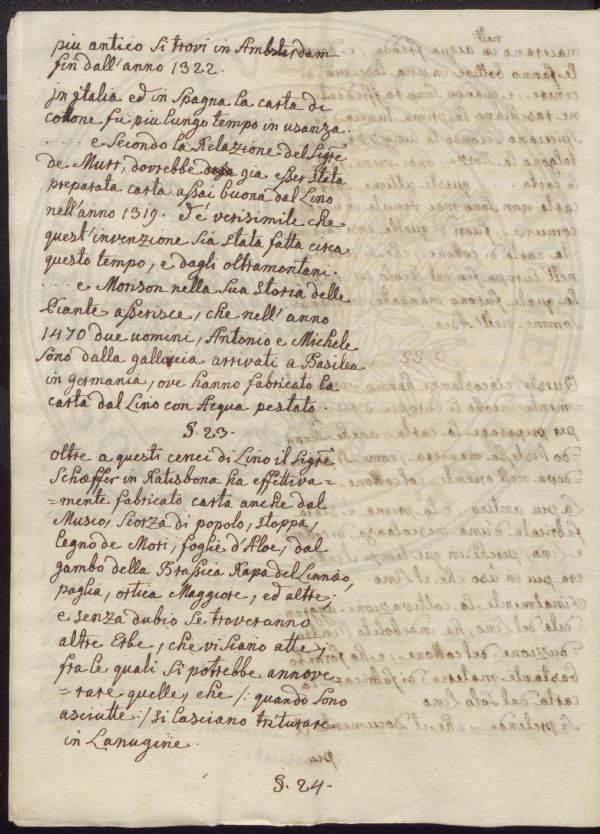 piu antico si trovi in Amsterdam
fin dall'anno 1322.
Jn jtalia ed in Spagna la carta di
cotone fù piu lungo tempo in usanza.
.... e secondo la Relazione del Sigre
de Murr, dovrebbe già esser stata
preparata carta assai buona dal Lino
nell'anno 1319. ed è verisimile che
quest'invenzione sia stata fatta circa
questo tempo, e dagli oltramontani.
.... e Morison nella sua storia delle
Piante asserisce, che nell'anno
1470 due uomini, Antonio e Michele
sono dalla gallicia arrivati a Basilea
in germania, ove hanno fabricato la
carta dal Lino con Acqua pestato.
§. 23.
oltre a questi cenci di Lino il Sigre
Schaffer in Ratisbona ha effettiva=
=mente fabricato carta anche dal
Musco, scorza di popolo, stoppa,
Legno de Mori, foglie d'Aloe, dal
gambo della Brassica Rapa del Linnæo,
paglia, ortica Maggiore, ed altre;
e senza dubio se troveranno
altre Erbe, che vi siano atte,
fra le quali si potrebbe annove=
=rare quelle, che /: quando sono
asciutte :/ si lasciano triturare
in Lanugine.
§. 24.